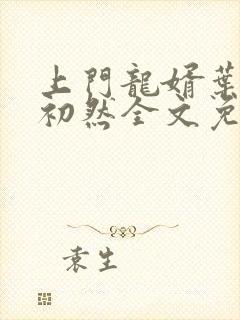 上門龍婿葉
初然全文免
袁生